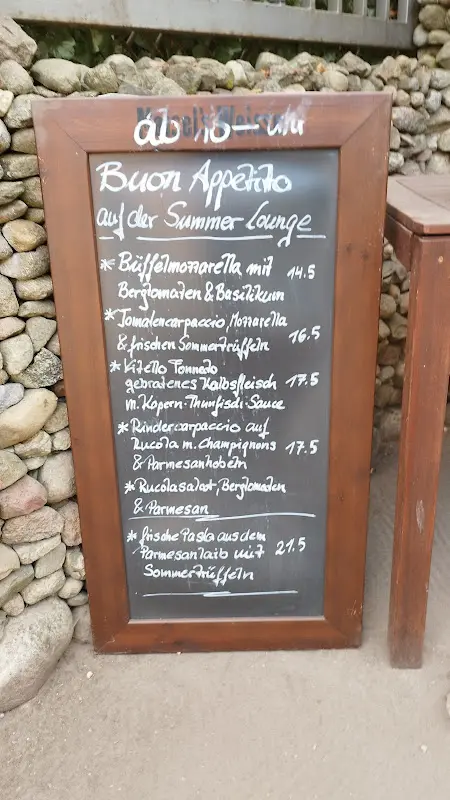 ab 18 Uhr
Buon Appetito
auf der Summer Lounge
* Büffelmozzarella mit 14.5
Bergtomaten & Basilikum
* Tomatencarpaccio, Mozzarella
& frischen Sommertrüffeln 16.5
* Vitello Tonnedo
gebratenes Kalbsfleisch 17.5
m. Kapern-Thunfisch-Sauce
* Rindercarpaccio auf
Rucola m. Champignons 17.5
& Parmesanhobeln
* Rucolasalat, Bergtomaten
& Parmesan
* frische Pasta aus dem
Parmesanlaib mit 21.5
Sommertrüffeln